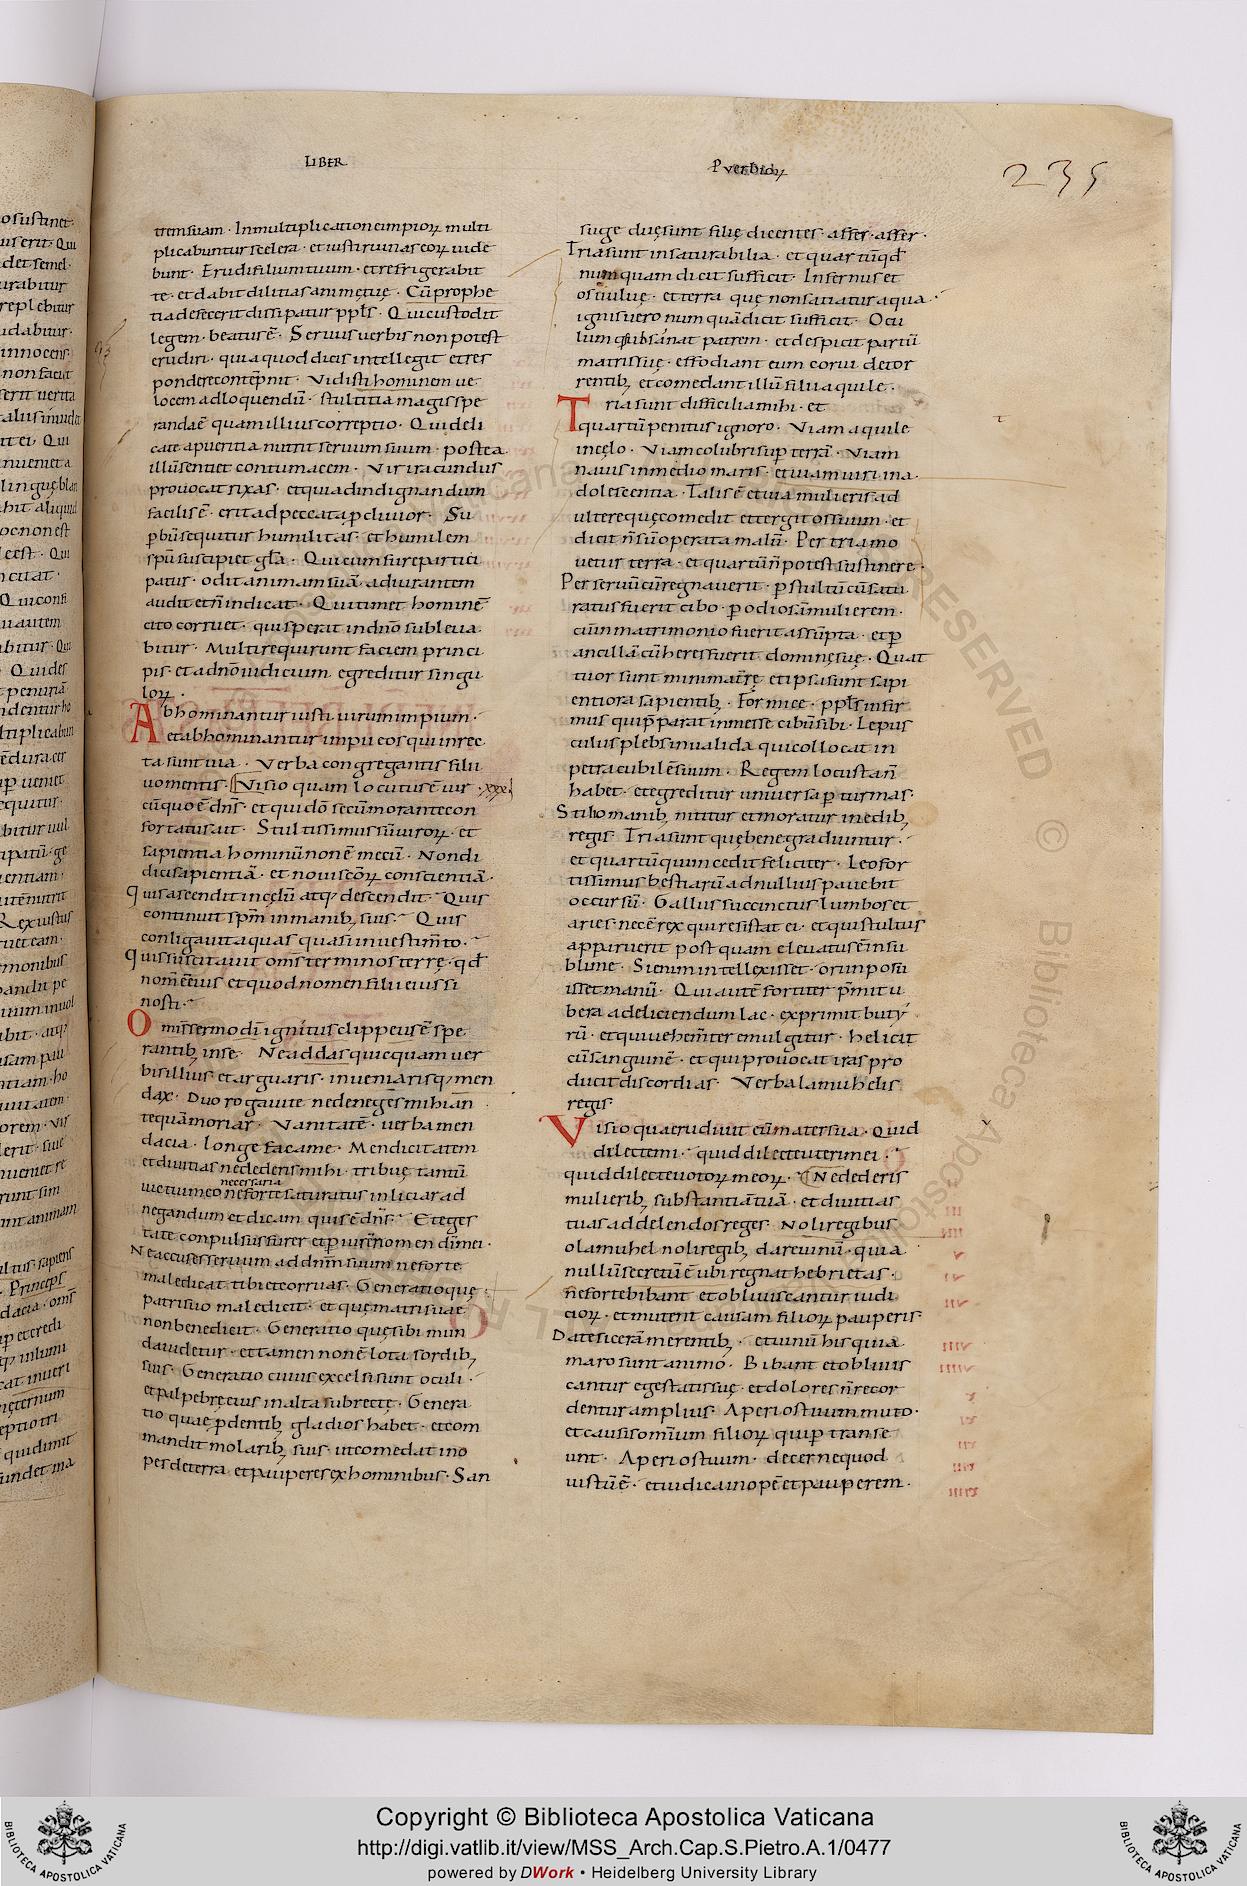 LIBER
Pverbioꝝ
235
trem suam · In multiplicatione impioꝝ multi
plicabuntur scelera · et iusti ruinas eoꝝ uide
bunt · Erudi filium tuum · et refrigerabit
te · et dabit dilitias animę tuę · Cū prophe
tia defecerit dissipatur ppl̄s · Qui custodit
legem · beatus ē · Seruus uerbis non potest
erudiri · quia quod dicis intellegit et res
pondere contēpnit · Vidisti hominem ue
locem ad loquendū · stultitia magis spe
randa ē quam illius correptio · Qui deli
cate a pueritia nutrit seruum suum · postea
illū sentiet contumacem · Vir iracundus
prouocat rixas · et qui ad indignandum
facilis ē · erit ad peccata ꝓcliuior · Su
ꝑbū sequitur humilitas · et humilem
spū suscipiet gl̄a · Qui cum fure partici
patur · odit animam suā · adiurantem
audit et n̄ indicat · Qui timet hominē
cito corruet · qui sperat in dn̄o subleua
bitur · Multi requirunt faciem princi
pis · et a dn̄o iudicium egreditur singu
loꝝ ·
Abhominantur iusti uirum impium ·
et abhominantur impii eos qui in rec
ta sunt uia · Verba congregantis filii
uomentis · Visio quam locutus ē uir · xxx
cū quo ē dn̄s · et qui dō secū morante con
fortatus ait · Stultissimus sū uiroꝝ · et
sapientia hominū non ē mecū · Non di
dici sapientiā · et noui sc̄oꝝ conscientiā ·
Quis ascendit in cęlū atqꝫ descendit · Quis
continuit spm̄ in manibꝫ suis · Quis
conligauit aquas quasi in uestim̄to ·
Quis suscitauit oms̄ terminos terrę · qd̄
nom̄ ē eius et quod nomen filii eius si
nosti ·
Omis̄ sermo dī ignitus clippeus ē spe
rantibꝫ in se · Ne addas quicquam uer
bis illius et arguaris · inueniarisqꝫ men
dax · Duo rogaui te ne deneges mihi an̄
tequā moriar · Vanitatē · uerba men
dacia · longe fac a me · Mendicitatem
et diuitias ne dederis mihi · tribuę tantū
necessaria
uictui meo ne forte saturatus inliciar ad
negandum et dicam quis ē dn̄s · Et eges
tate conpulsus furer et ꝑiurē nomen dī mei ·
Ne accuses seruum ad dnm̄ suum ne forte
maledicat tibi et corruas · Generatio quę
patri suo maledicit · et quę matri suae
non benedicit · Generatio quę sibi mun
da uidetur · et tamen non ē lota sordibꝫ
suis · Generatio cuius excelsi sunt oculi ·
et palpebrę eius in alta subrectę · Genera
tio quae ꝓ dentibꝫ gladios habet · et com
mandit molaribꝫ suis · ut comedat ino
pes de terra et pauperes ex hominibus · San
suge duę sunt filię dicentes · affer · affer ·
Tria sunt insaturabilia · et quartū qd̄
numquam dicit sufficit · Infernus et
os uuluę · et terra quę non satiatur aqua ·
ignis uero numquā dicit sufficit · Ocu
lum q subsānat patrem · et despicit partū
matris suę · effodiant eum corui de tor
rentibꝫ et comedant illū filii aquile ·
Tria sunt difficilia mihi · et
quartū penitus ignoro · Viam aquile
in cęlo · Viam colubri suꝑ terrā · Viam
nauis in medio maris · et uiam uiri in a
dolescentia · Talis ē et uia mulieris ad
ulterę quę comedit et tergit os suum · et
dicit n̄ sū operata malū · Per tria mo
uetur terra · et quartū n̄ potest sustinere ·
Per seruū cū regnauerit · ꝑ stultū cū satu
ratus fuerit cibo · ꝑ odiosā mulierem ·
cū in matrimonio fuerit assūpta · et ꝑ
ancillā cū heres fuerit dominę suę · Quat
tuor sunt minima tr̄ę et ipsa sunt sapi
entiora sapientibꝫ · Formice · ppl̄s infir
mus qui p̄parat in messe cibū sibi · Lepus
culus plebs inualida qui collocat in
petra cubilē suum · Regem locusta n̄
habet · et egreditur uniuersa ꝑ turmas ·
Stilio manibꝫ nititur et moratur in edibꝫ
regis · Tria sunt quę bene gradiuntur ·
et quartū quum cedit feliciter · Leo for
tissimus bestiarū ad nullius pauebit
occursū · Gallus succinctus lumbos et
aries · nec ē rex qui resistat ei · et qui stultus
apparuerit post quam eleuatus ē in su
blime · Si enim intellexisset · ori inposu
isset manū · Qui autē fortiter p̄mit u
bera ad eliciendum lac · exprimit buty
rū · et qui uehem̄ter emulgitur · helicit
cū sanguinē · et qui prouocat iras pro
ducit discordias · Verba lamuhelis
regis ·
Visio qua erudiuit eū mater sua · Quid
dilecte mi · quid dilecte uteri mei ·
quid dilecte uotoꝝ meoꝝ · Ne dederis
mulieribꝫ substantiā tuā · et diuitias
tuas ad delendos reges · Noli regibus
o lamuhel noli regibꝫ dare uinū · quia
nullū secretū ē ubi regnat hebrietas ·
n̄ e forte bibant et obliuiscantur iudi
cioꝝ · et mutent causam filioꝝ pauperis ·
Date sicerā merentibꝫ · et uinū his qui a
maro sunt animo · Bibant et obliuis
cantur egestatis suę · et doloris n̄ recor
dentur amplius · Aperi os tuum muto ·
et causis omium filioꝝ qui ꝑ transe
unt · Aperi os tuum · decerne quod
iustū ē · et iudica inopē et pauperem ·
Copyright © Biblioteca Apostolica Vaticana
http://digi.vatlib.it/view/MSS_Arch.Cap.S.Pietro.A.1/0477
powered by DWork • Heidelberg University Library